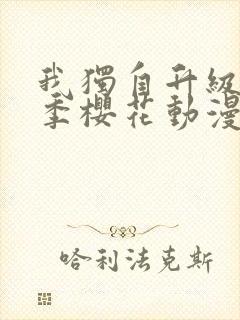 我獨自升級
季櫻花動漫
哈利法克斯